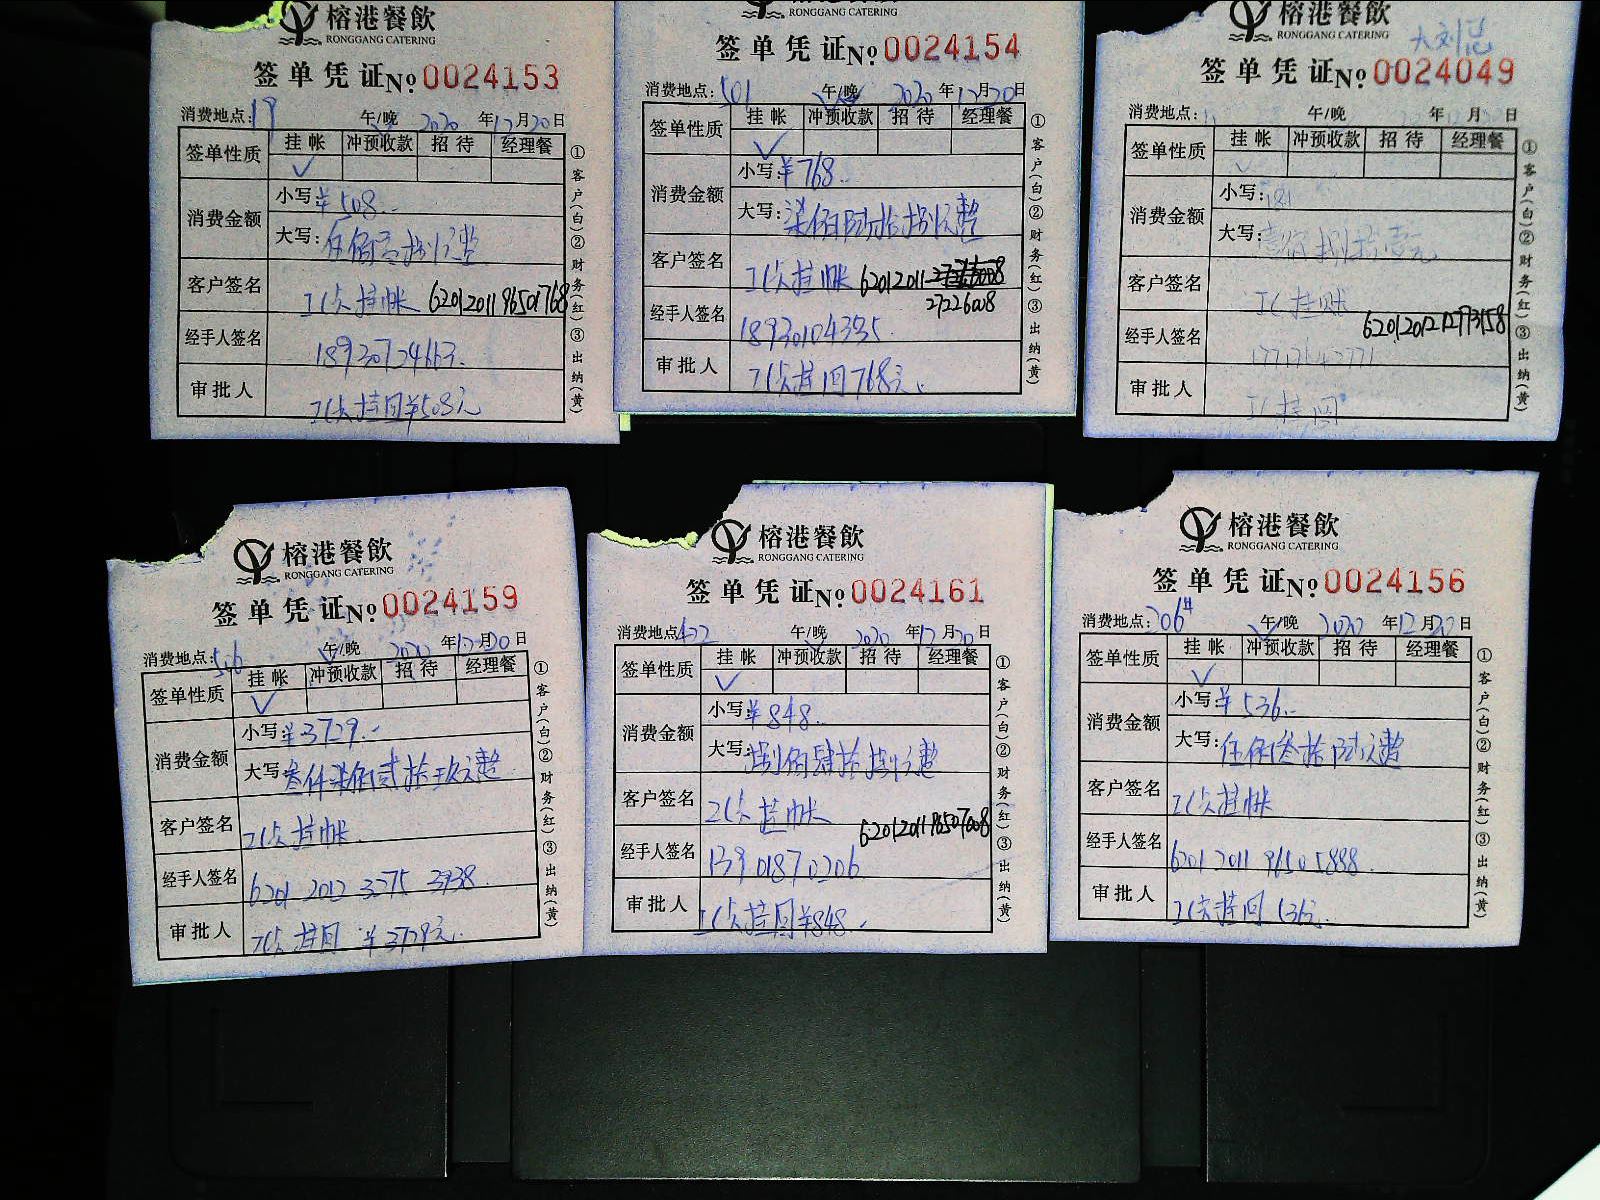 榕港餐飲
RONGGANG CATERING
签单凭证No 0024153
消费地点: 19 午/晚 2020年12月20日
签单性质 挂帐 冲预收款 招待 经理餐
✓
消费金额 小写: ¥508.-
大写: 伍佰零捌元整
客户签名 工会挂帐 6201201196501768
经手人签名 18930724663.
审批人 工会挂回¥508元
①客户(白)②财务(红)③出纳(黄)
RONGGANG CATERING
签单凭证No 0024154
消费地点: 501 午/晚 2020年12月20日
签单性质 挂帐 冲预收款 招待 经理餐
✓
消费金额 小写: ¥768.-
大写: 柒佰陆拾捌元整
客户签名 工会挂帐 62012011
27226008
经手人签名 18930104335
审批人 工会挂回768元.
①客户(白)②财务(红)③出纳(黄)
榕港餐飲
RONGGANG CATERING
大刘总
签单凭证No 0024049
消费地点: 午/晚 年 月 日
签单性质 挂帐 冲预收款 招待 经理餐
✓
消费金额 小写: 181
大写: 壹佰捌拾壹元
客户签名 工会挂账
6201201212773158
经手人签名
审批人 工会挂回
①客户(白)②财务(红)③出纳(黄)
榕港餐飲
RONGGANG CATERING
签单凭证No 0024159
消费地点: 506 午/晚 2020年12月20日
签单性质 挂帐 冲预收款 招待 经理餐
✓
消费金额 小写: ¥3729.-
大写: 叁仟柒佰贰拾玖元整
客户签名 工会挂帐.
经手人签名 6201 2012 3275 3938
审批人 工会挂回 ¥3729元.
①客户(白)②财务(红)③出纳(黄)
榕港餐飲
RONGGANG CATERING
签单凭证No 0024161
消费地点: 422 午/晚 2020年12月20日
签单性质 挂帐 冲预收款 招待 经理餐
✓
消费金额 小写: ¥848.-
大写: 捌佰肆拾捌元整
客户签名 工会挂帐
6201201196507008
经手人签名 13901870206
审批人 工会挂回¥848.-
①客户(白)②财务(红)③出纳(黄)
榕港餐飲
RONGGANG CATERING
签单凭证No 0024156
消费地点: 206# 午/晚 2020年12月20日
签单性质 挂帐 冲预收款 招待 经理餐
✓
消费金额 小写: ¥536.-
大写: 伍佰叁拾陆元整
客户签名 工会挂帐
经手人签名 6201 2011 9650 5888
审批人 工会挂回 536元.
①客户(白)②财务(红)③出纳(黄)